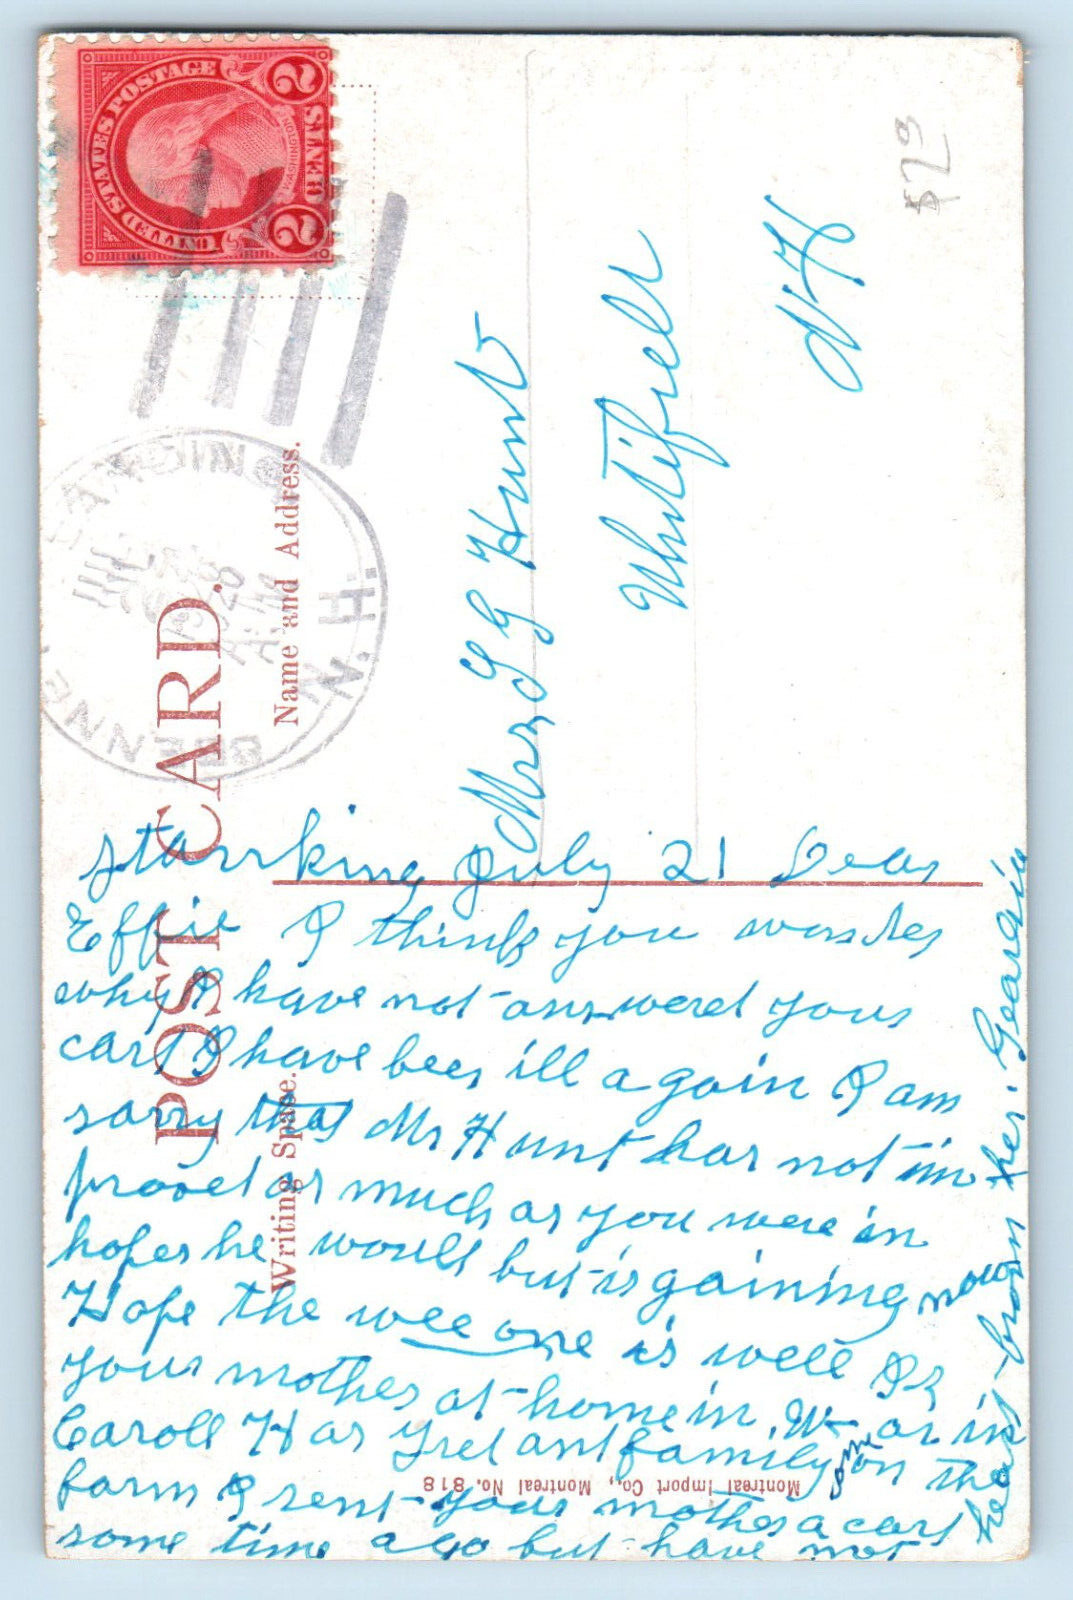 UNITED STATES POSTAGE
WASHINGTON
2 CENTS 2
$2 9
1928
A.M.
N. H.
POST CARD.
Name and Address.
Writing Space.
Mrs G G Hunt
Whitefield
N H
Starrking July 21 Dear
Effie I think you wonder
why I have not answered your
card I have been ill again I am
sorry that Mr Hunt has not im
proved as much as you were in
hopes he would but is gaining now
Hope the wee one is well Is
your mother at home in W or in
Caroll Has Fred ant family on the
farm I sent your mother a card
some time ago but have not
heart from her. Geardia
Montreal Import Co., Montreal No. 818